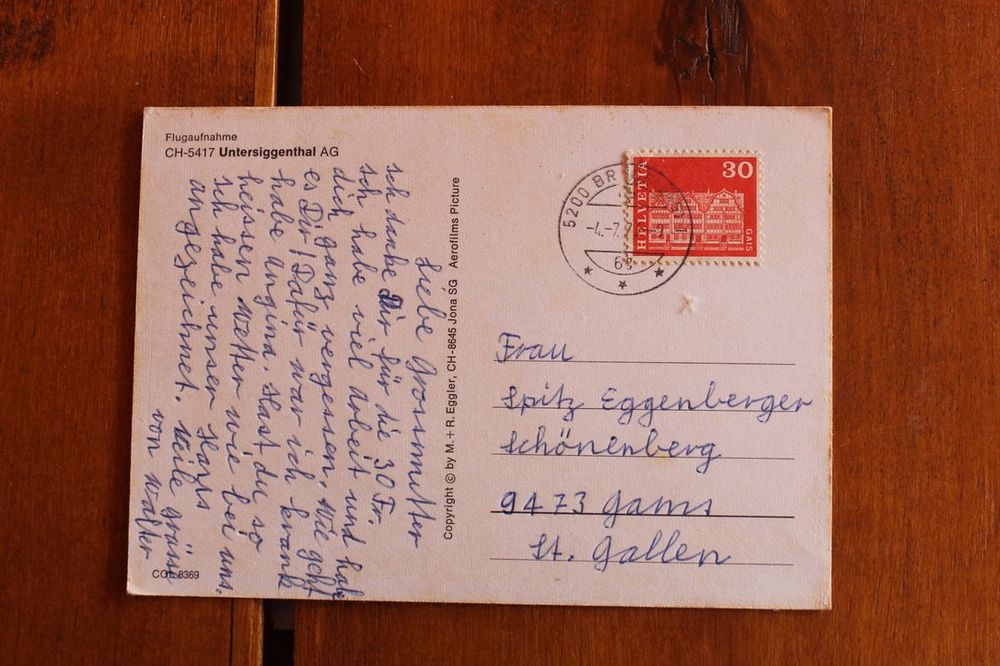 Flugaufnahme
CH-5417 Untersiggenthal AG
Liebe Grossmutter
ich danke Dir für die 30 Fr.
ich habe viel Arbeit und habe
dich ganz vergessen. Wie geht
es Dir! Dafür war ich krank
habe Angina. Hast du so
heissen Wetter wie bei uns.
ich habe unser Haus
angezeichnet. Veile grüsse
von Walter
COL 8369
Copyright © by M.+ R. Eggler, CH-8645 Jona SG Aerofilms Picture
5200 BR
-4.-7.
HELVETIA
30
GAIS
Frau
Spitz Eggenberger
Schönenberg
9473 Gams
St. Gallen